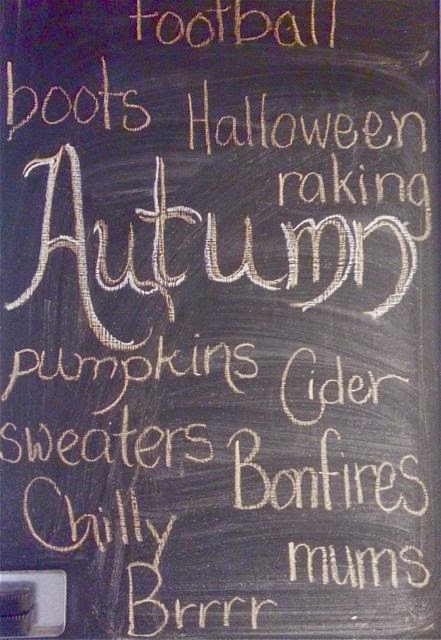 football
boots
Halloween
raking
Autumn
pumpkins
Cider
sweaters
Bonfires
Chilly
mums
Brrrr